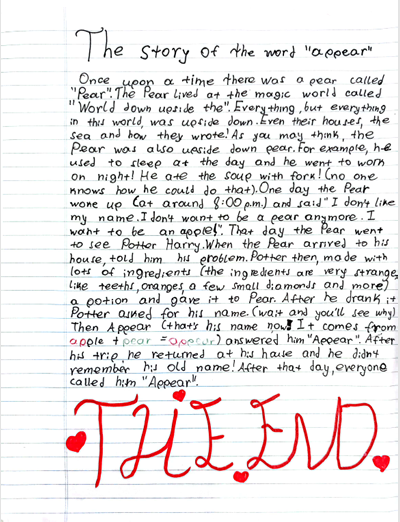 The story of the word "appear"
Once upon a time there was a pear called
"Pear". The Pear lived at the magic world called
"World down upside the". Everything, but everything
in this world, was upside down. Even their houses, the
sea and how they wrote! As you may think, the
Pear was also upside down pear. For example, he
used to sleep at the day and he went to work
on night! He ate the soup with fork! (no one
knows how he could do that). One day the Pear
woke up (at around 8:00 p.m.) and said" I don't like
my name. I don't want to be a pear anymore. I
want to be an apple!". That day the Pear went
to see Potter Harry. When the Pear arrived to his
house, told him his problem. Potter then, made with
lots of ingredients (the ingredients are very strange,
like teeths, oranges, a few small diamonds and more)
a potion and gave it to Pear. After he drank it
Potter asked for his name. (wait and you'll see why)
Then Appear (that's his name now! It comes from
apple + pear = appear) answered him "Appear". After
his trip, he returned at his house and he didn't
remember his old name! After that day, everyone
called him "Appear".
THE END